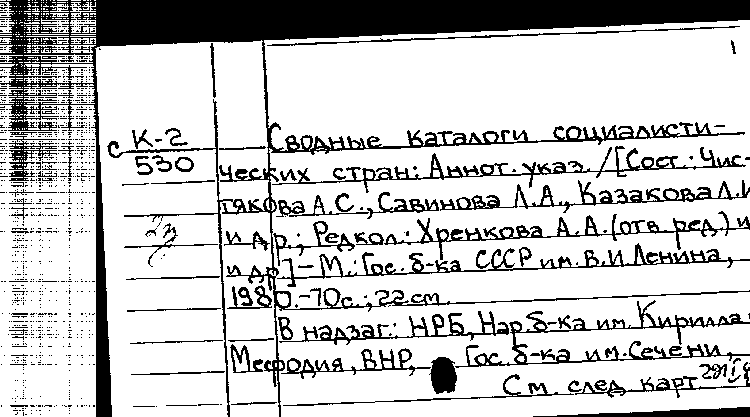 1
с К-2 Сводные каталоги социалисти-
530 ческих стран: Аннот. указ. / [Сост.: Чис-
тякова А.С., Савинова Л.А., Казакова Л.И
и др.; Редкол.: Хренкова А.А. (отв. ред.) и
и др.] – М.: Гос. б-ка СССР им. В.И Ленина,
1980. – 70с.; 22см.
В надзаг.: НРБ, Нар. б-ка им. Кирилла и
Мефодия, ВНР, Гос. б-ка им. Сечени,
См. след. карт